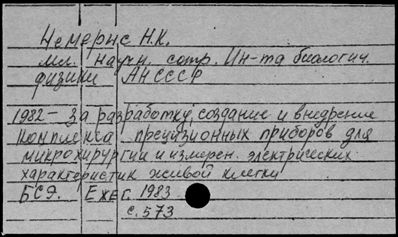 Чемерис Н.К.
мл. научн. сотр. Ин-та биологич.
физики АН СССР
1982 — За разработку, создание и внедрение
комплекса прецизионных приборов для
микрохирургии и измерен. электрических
характеристик живой клетки
БСЭ. Ежег. 1983
с. 573